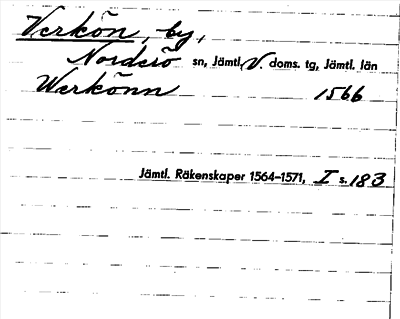 Verkön, by,
Norderö sn, Jämtl. V. doms. tg, Jämtl. län
Werkönn 1566
Jämtl. Räkenskaper 1564-1571, I s. 183